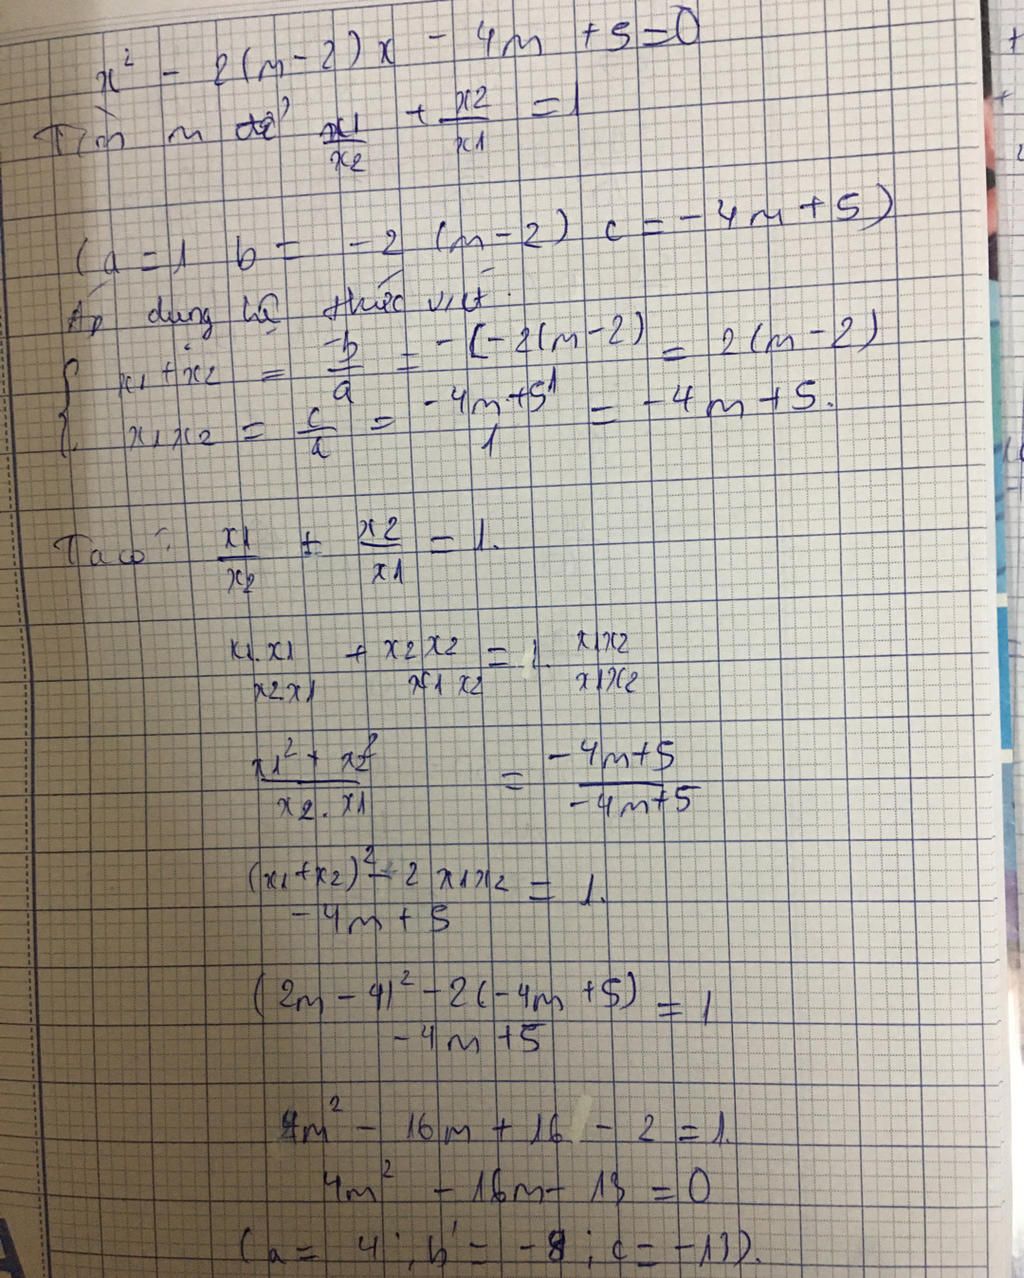 x² - 2(m-2)x - 4m + 5 = 0
Tìm m để x1/x2 + x2/x1 = 1
(a = 1 b = -2 (m-2) c = -4m + 5)
Áp dụng hệ thức viét.
{ x1 + x2 = -b/a = -(-2(m-2)/1 = 2(m-2)
x1x2 = c/a = -4m+5/1 = -4m+5.
Ta có: x1/x2 + x2/x1 = 1.
x1.x1/x2x1 + x2x2/x1x2 = 1. x1x2/x1x2
x1² + x2²/x2.x1 = -4m+5/-4m+5
(x1+x2)² - 2x1x2/-4m+5 = 1.
(2m-4)² - 2(-4m+5)/-4m+5 = 1
4m² - 16m + 16 - 2 = 1.
4m² - 16m - 13 = 0
(a = 4; b' = -8; c = -13).